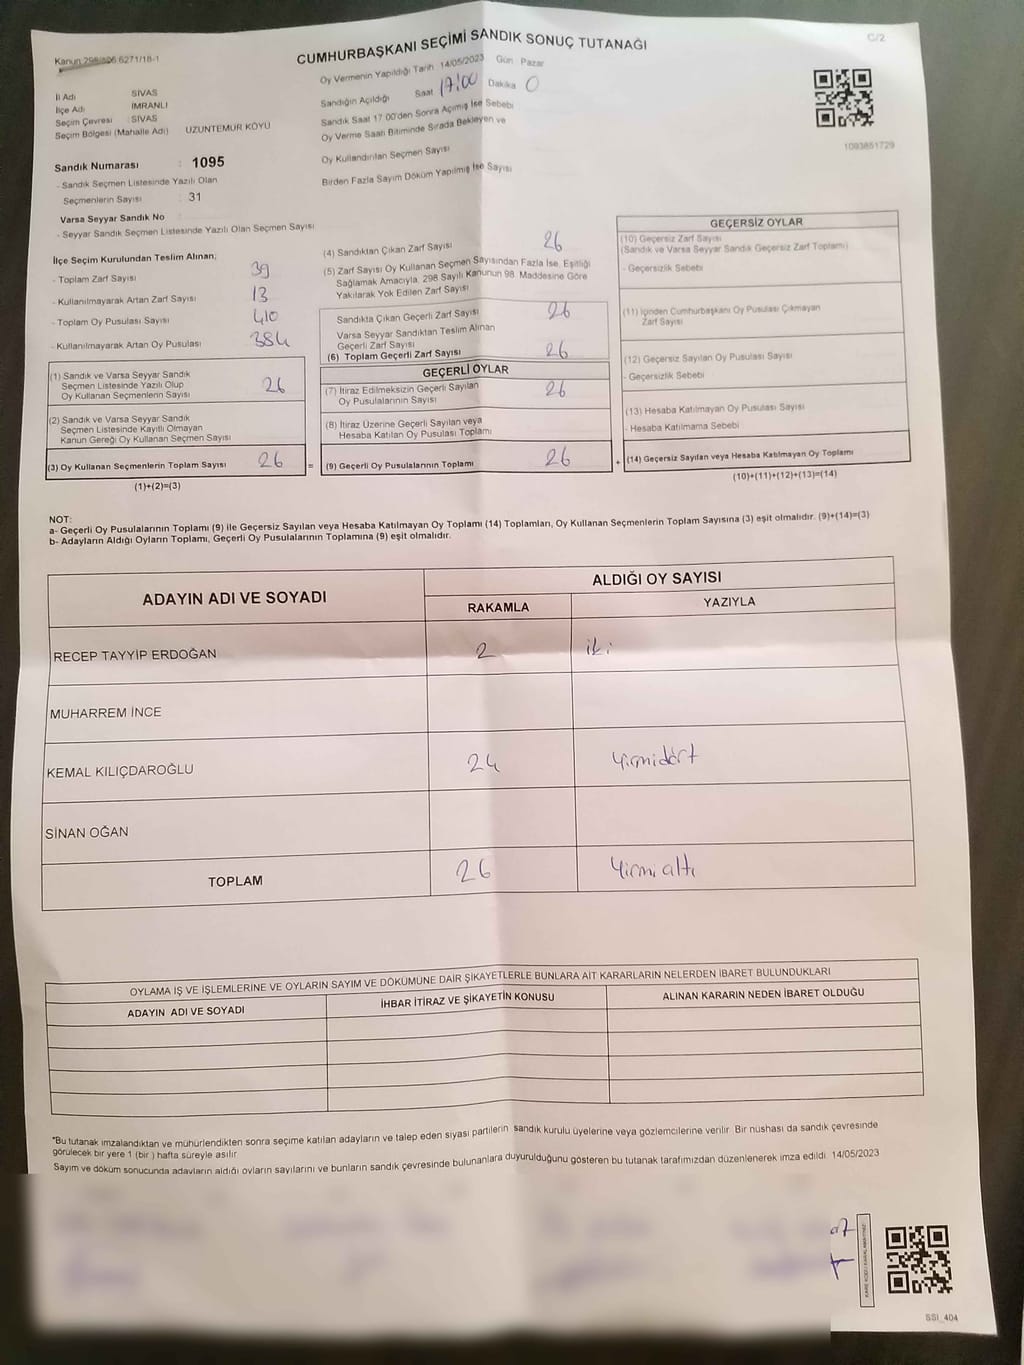 CUMHURBAŞKANI SEÇİMİ SANDIK SONUÇ TUTANAĞI
C/2
Kanun:298/
6271/18-1
İl Adı SİVAS
İlçe Adı İMRANLI
Seçim Çevresi : SİVAS
Seçim Bölgesi (Mahalle Adı) UZUNTEMUR KÖYÜ
Sandık Numarası : 1095
- Sandık Seçmen Listesinde Yazılı Olan
Seçmenlerin Sayısı : 31
Varsa Seyyar Sandık No
- Seyyar Sandık Seçmen Listesinde Yazılı Olan Seçmen Sayısı
Oy Vermenin Yapıldığı Tarih 14/05/2023 Gün Pazar
Sandığın Açıldığı Saat 17:00 Dakika 0
Sandık Saat 17.00'den Sonra Açımış İse Sebebi
Oy Verme Saati Bitiminde Sırada Bekleyen ve
Oy Kullandırılan Seçmen Sayısı
Birden Fazla Sayım Döküm Yapılmış İse Sayısı
1093851729
İlçe Seçim Kurulundan Teslim Alınan;
- Toplam Zarf Sayısı 39
- Kullanılmayarak Artan Zarf Sayısı 13
- Toplam Oy Pusulası Sayısı 410
- Kullanılmayarak Artan Oy Pusulası 384
(1) Sandık ve Varsa Seyyar Sandık
Seçmen Listesinde Yazılı Olup
Oy Kullanan Seçmenlerin Sayısı 26
(2) Sandık ve Varsa Seyyar Sandık
Seçmen Listesinde Kayıtlı Olmayan
Kanun Gereği Oy Kullanan Seçmen Sayısı
(3) Oy Kullanan Seçmenlerin Toplam Sayısı 26 =
(1)+(2)=(3)
(4) Sandıktan Çıkan Zarf Sayısı 26
(5) Zarf Sayısı Oy Kullanan Seçmen Sayısından Fazla İse, Eşitliği
Sağlamak Amacıyla, 298 Sayılı Kanunun 98. Maddesine Göre
Yakılarak Yok Edilen Zarf Sayısı
Sandıkta Çıkan Geçerli Zarf Sayısı 26
Varsa Seyyar Sandıktan Teslim Alınan
Geçerli Zarf Sayısı
(6) Toplam Geçerli Zarf Sayısı 26
GEÇERLİ OYLAR
(7) İtiraz Edilmeksizin Geçerli Sayılan
Oy Pusulalarının Sayısı 26
(8) İtiraz Üzerine Geçerli Sayılan veya
Hesaba Katılan Oy Pusulası Toplamı
(9) Geçerli Oy Pusulalarının Toplamı 26 +
GEÇERSİZ OYLAR
(10) Geçersiz Zarf Sayısı
(Sandık ve Varsa Seyyar Sandık Geçersiz Zarf Toplamı)
- Geçersizlik Sebebi
(11) İçinden Cumhurbaşkanı Oy Pusulası Çıkmayan
Zarf Sayısı
(12) Geçersiz Sayılan Oy Pusulası Sayısı
- Geçersizlik Sebebi
(13) Hesaba Katılmayan Oy Pusulası Sayısı
- Hesaba Katılmama Sebebi
(14) Geçersiz Sayılan veya Hesaba Katılmayan Oy Toplamı
(10)+(11)+(12)+(13)=(14)
NOT:
a- Geçerli Oy Pusulalarının Toplamı (9) ile Geçersiz Sayılan veya Hesaba Katılmayan Oy Toplamı (14) Toplamları, Oy Kullanan Seçmenlerin Toplam Sayısına (3) eşit olmalıdır. (9)+(14)=(3)
b- Adayların Aldığı Oyların Toplamı, Geçerli Oy Pusulalarının Toplamına (9) eşit olmalıdır.
ADAYIN ADI VE SOYADI ALDIĞI OY SAYISI
RAKAMLA YAZIYLA
RECEP TAYYİP ERDOĞAN 2 iki
MUHARREM İNCE
KEMAL KILIÇDAROĞLU 24 Yirmidört
SİNAN OĞAN
TOPLAM 26 Yirmi altı
OYLAMA İŞ VE İŞLEMLERİNE VE OYLARIN SAYIM VE DÖKÜMÜNE DAİR ŞİKAYETLERLE BUNLARA AİT KARARLARIN NELERDEN İBARET BULUNDUKLARI
ADAYIN ADI VE SOYADI İHBAR İTİRAZ VE ŞİKAYETİN KONUSU ALINAN KARARIN NEDEN İBARET OLDUĞU
*Bu tutanak imzalandıktan ve mühürlendikten sonra seçime katılan adayların ve talep eden siyasi partilerin sandık kurulu üyelerine veya gözlemcilerine verilir. Bir nüshası da sandık çevresinde
görülecek bir yere 1 (bir ) hafta süreyle asılır.
Sayım ve döküm sonucunda adayların aldığı oyların sayılarını ve bunların sandık çevresinde bulunanlara duyurulduğunu gösteren bu tutanak tarafımızdan düzenlenerek imza edildi. 14/05/2023
KARE KODU KARALAMAYINIZ
SSI_404